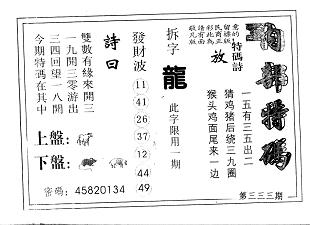 特碼
第三三三期
一五有三五出二
猜鸡猪后绕三九圈
猴头鸡面尾来一边
特碼詩
放
意的
留樣版
民商正
彩此為
請有面
敬凡版
拆字
龍
此字限用一期
發財波
11
41
26
37
12
44
49
詩曰
雙數有緣來開三
一九開三零游出
三四回望一八開
今期特碼在其中
上盤:
下盤:
密碼: 45820134